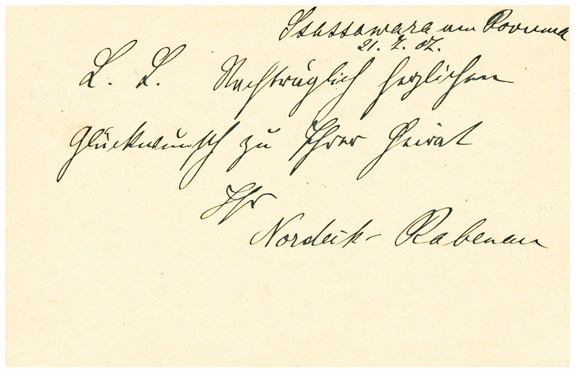 am Rovuma
21. 7. 07.
L. L. Nachträglich herzlichen
Glückwunsch zu Ihrer Heirat
Ihr
Nordeck-Rabenau